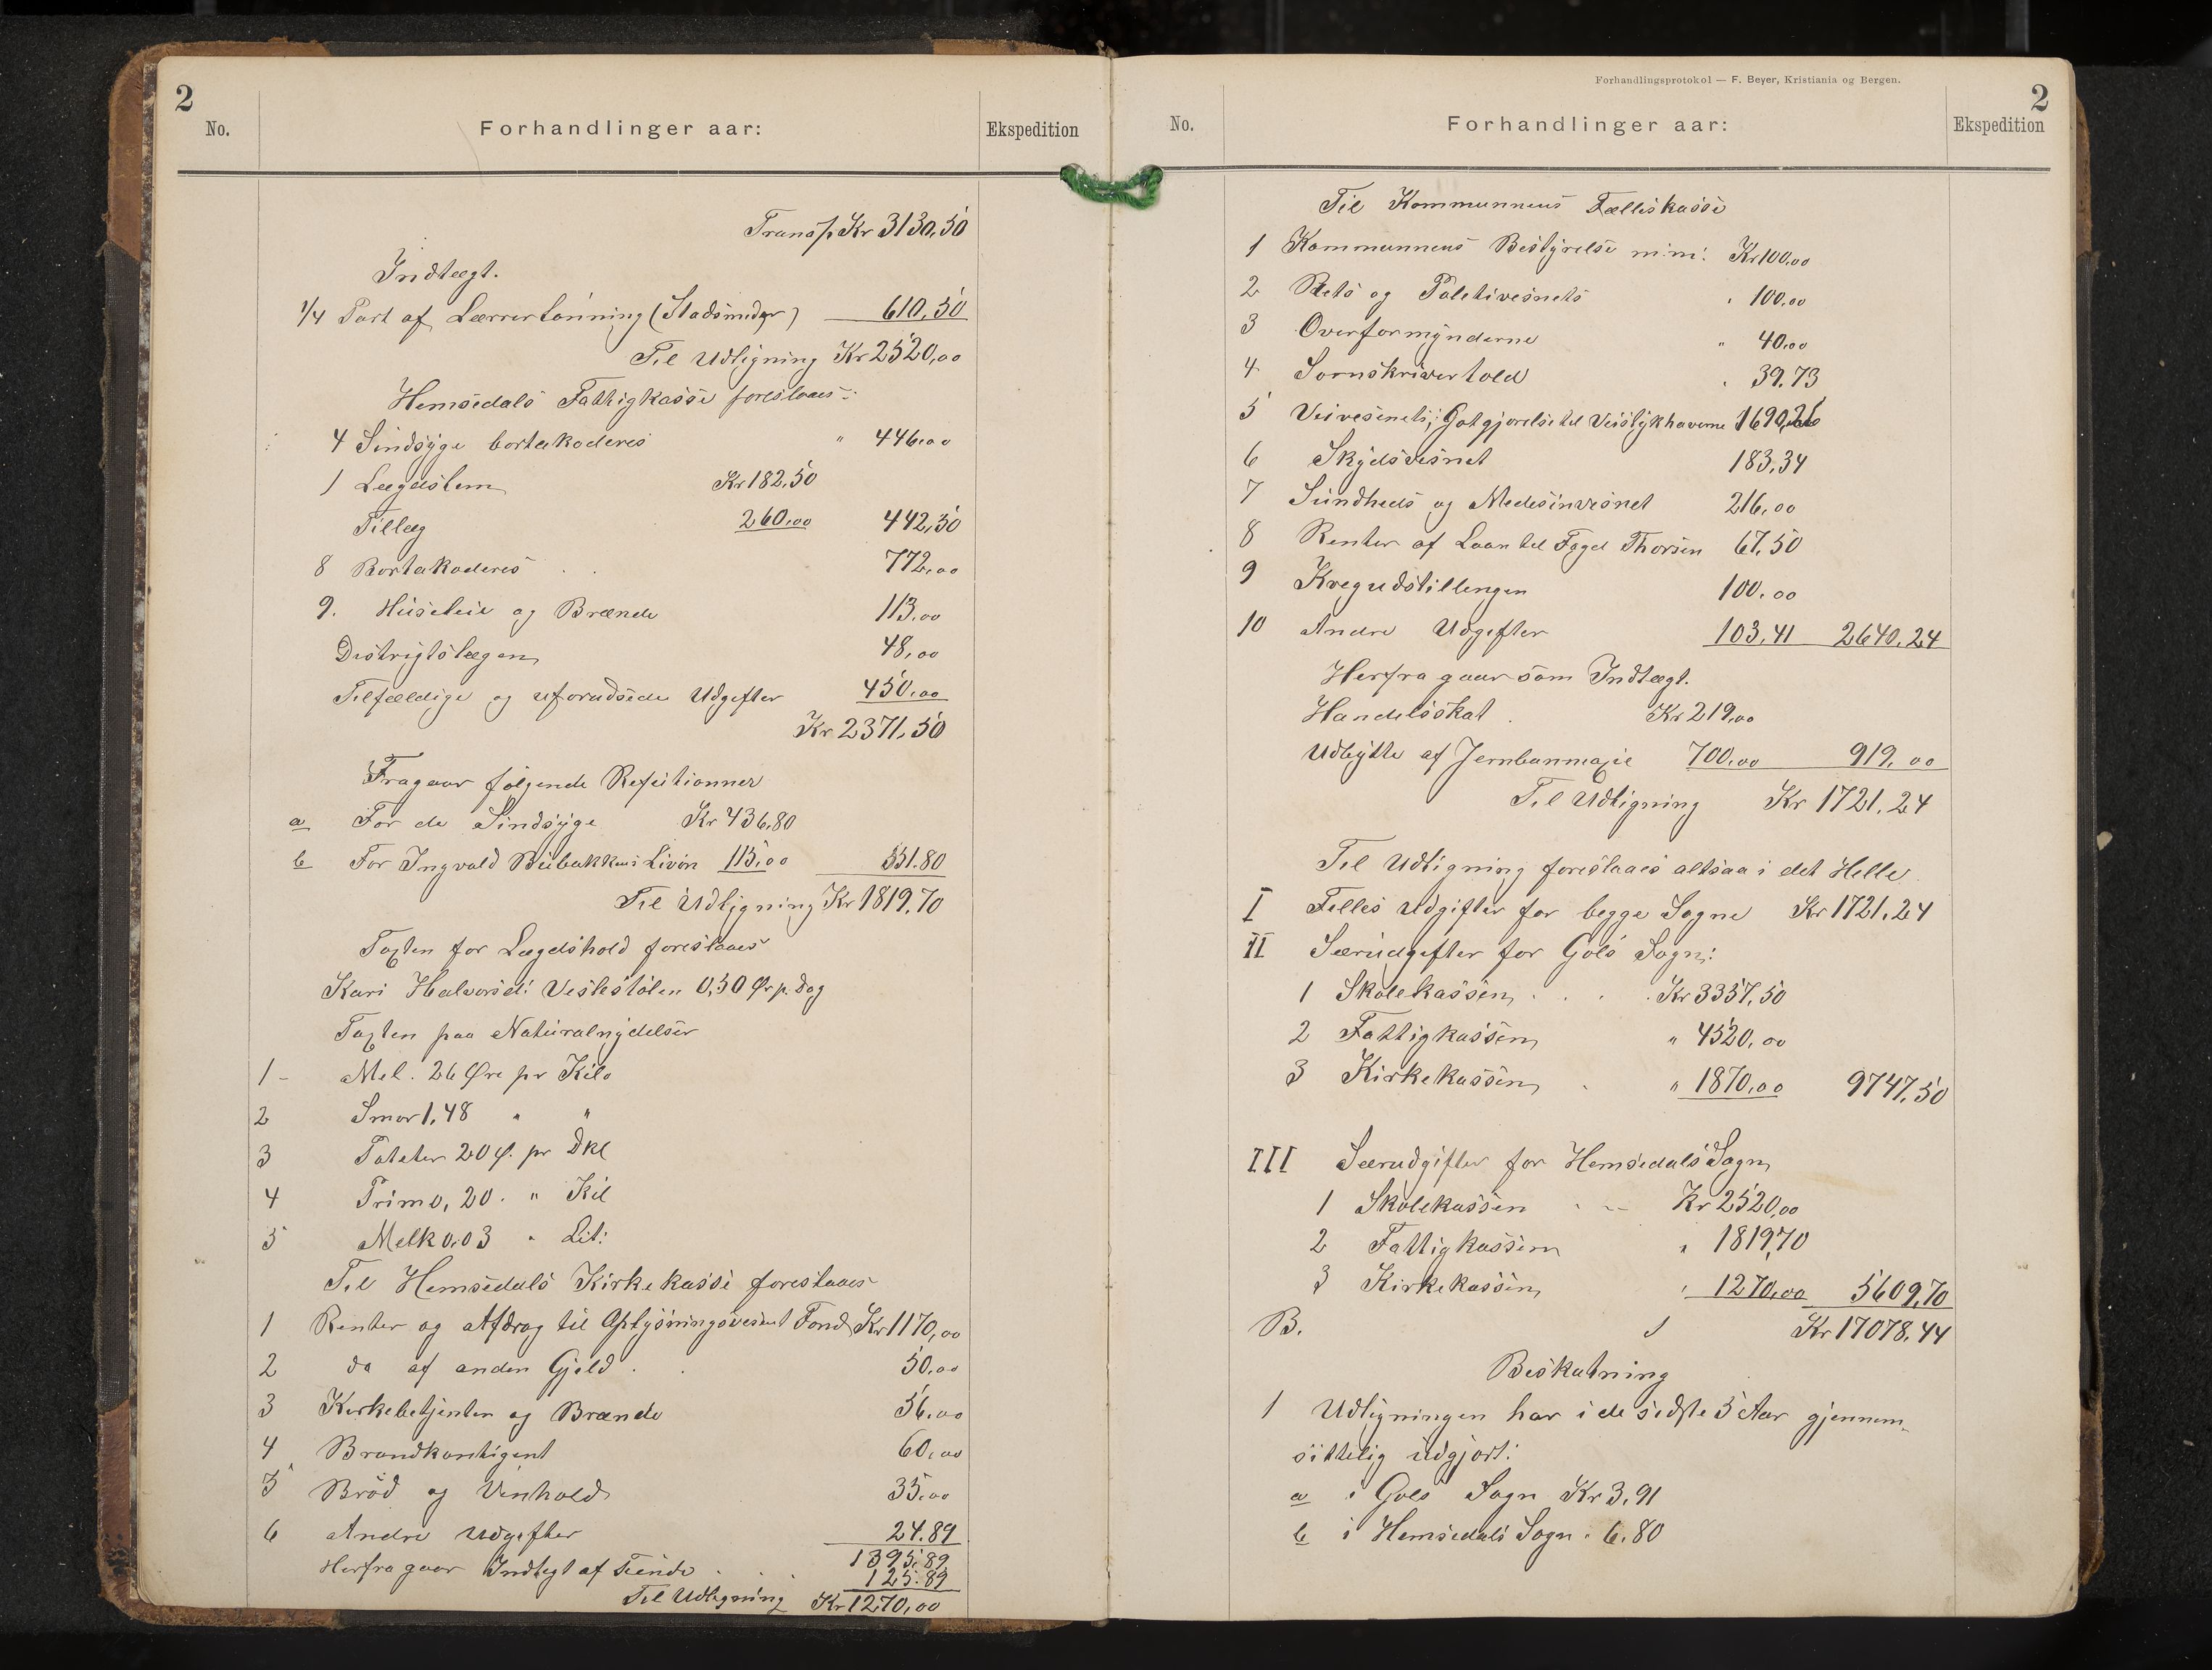 2
No.
Forhandlinger aar:
Ekspedition
Transp Kr 3130,50
Indtægt.
1/4 Part af Lærrerlønning (Stadsmidler) 610,50
Til Udligning Kr 2520,00
Hemsedals Fattigkasse foreslaaes:
4 Sindsyge bortakoderes " 446,00
1 Lægdslem Kr 182,50
Tillæg 260,00 442,50
8 Bortakoderes . . 772,00
9. Huseleie og Brænde 113,00
Distrigtslægen 48,00
Tilfældige og uforudsede Udgifter 450,00
Kr 2371,50
Fragaar følgende Refutionner
a For de Sindsyge Kr 436,80
b For Ingvald Livøn 115,00 551.80
Til Udligning Kr 1819,70
Taxten for Lægdshold foreslaaes
Kari Halvorsd: Veslestølen 0,50 Ør p. Dag
Taxten paa Naturalnydelser
1 - Mel . 26 Øre pr Kilo
2 Smør 1,48 " "
3 Poteter 20 Ø. pr Dkl
4 Prim 0,20 . " Kil
5 Melk 0,03 " Lit:
Til Hemsedals Kirkekasse foreslaaes
1 Renter og Afdrag til Oplysningsvesent Fond Kr 1170,00
2 do af anden Gjeld . . 50.00
3 Kirkebetjenten og Brænde 56,00
4 Brandkontigent 60,00
5 Brød og Vinhold 35,00
6 Andre Udgifter 24.89
1395,89
Herfra gaar Indtegt af Tiende . . 125.89
Til Udligning Kr 1270,00
Forhandlingsprotokol — F. Beyer, Kristiania og Bergen.
2
No.
Forhandlinger aar:
Ekspedition
Til Kommunnens Fælleskasse
1 Kommunnens Bestyrelse m.m: Kr 100,00
2 Rets og Politivesnets " 100,00
3 Overformynderne " 40,00
4 Sornskrivertold " 39,73
5 Veivesenets; Gotgjørelse til Veistykhaverne 1690,26
6 Skydsvesnet 183,34
7 Sundheds og Medesinvesnet 216,00
8 Renter af Laan til Foged Thorsen 67,50
9 Kvegudstillingen 100,00
10 Andre Udgifter 103,41 2640,24
Herfra gaar som Indtægt.
Handelsskat . Kr 219,00
Udbytte af Jernbanmaxie 700,00 919,00
Til Udligning Kr 1721,24
Til Udligning foreslaaes altsaa i det Helle
I Felles Udgifter for begge Sogne Kr 1721,24
II Særudgifter for Gols Sogn:
1 Skolekassen . . . Kr 3357,50
2 Fattigkassen " 4520,00
3 Kirkekassen . " 1870,00 9747,50
III Særudgifter for Hemsedals Sogn
1 Skolekassen . -- Kr 2520,00
2 Fattigkassen " 1819,70
3 Kirkekassen " 1270,00 5609,70
B. Kr 17078,44
Beskatning
1 Udligningen har i de sidste 5 Aar gjennem-
sittelig udgjort:
a i Gols Sogn Kr 3,91
b i Hemsedals Sogn " 6,80